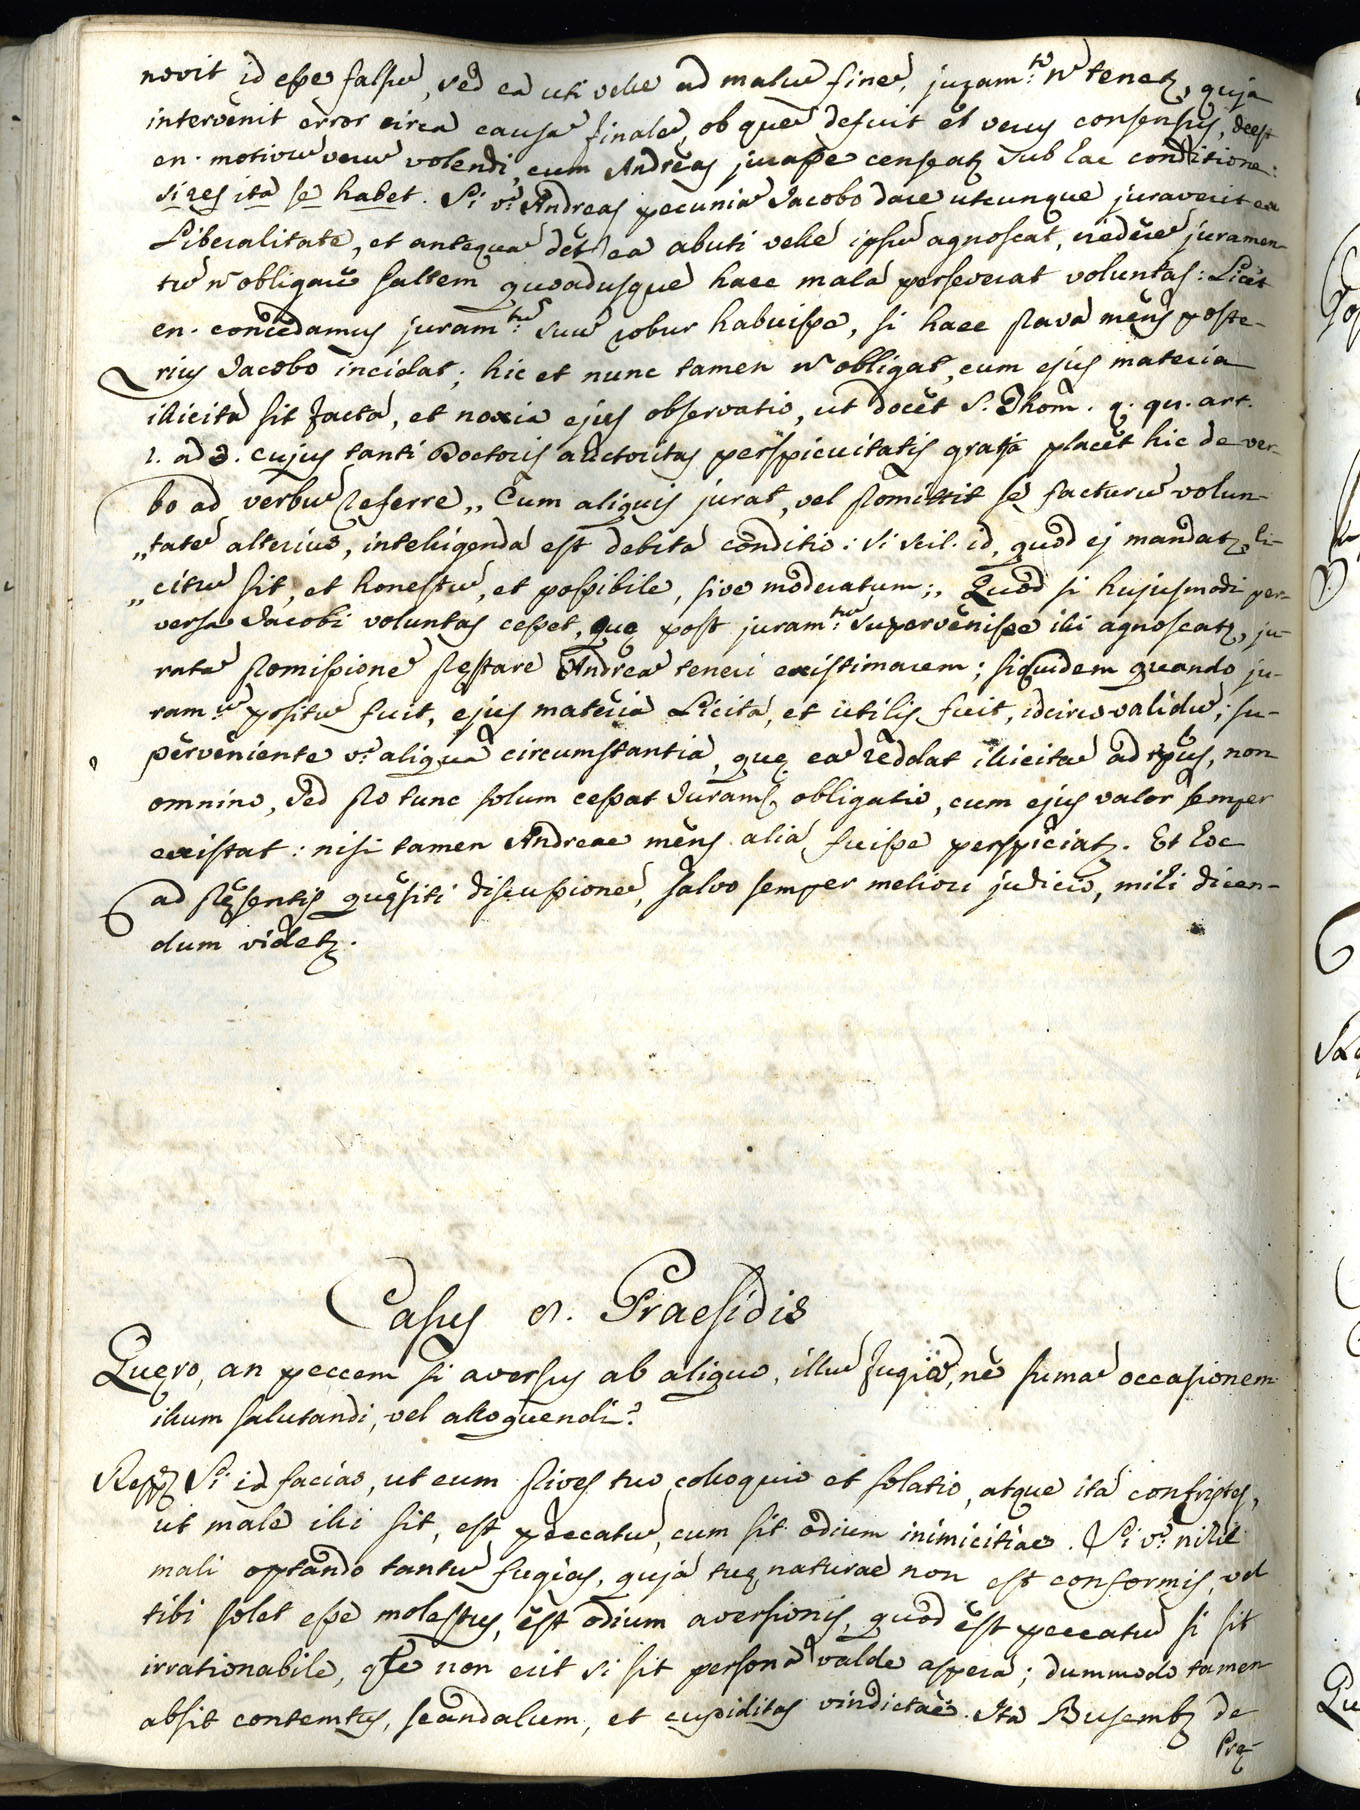 novit id esse falsū, sed eā uti velle ad malū finē, juram.tō n̄ tenet., quja
intervenit error circa causā finalē, ob quē defuit et verus consensus, deest
en. motivū verū volendi, cum Andreas jurasse censeat. sub hac conditione:
si res ita se habet. Si v.o Andreas pecuniā Jacobo dare utcunque juraverit ex
Liberalitate, et antequā det, eā abuti velle ipsū agnoscat, crederē juramen-
tū n̄ obligare saltem quoadusque haec mala perseverat voluntas: Licet
en. concedamus juram.tū suū robur habuisse, si haec prava mens poste-
rius Jacobo incidat; hic et nunc tamen n̄ obligat, cum ejus materia
illicita sit facta, et noxia ejus observatio, ut docet S. Thom. q. qu. art.
2. ad 3. cujus tanti Doctoris auctoritas perspicuitatis gratja placet hic de ver-
bo ad verbū referre „ Cum aliquis jurat, vel promittit se facturū volun-
„ tatē alterius, intelligenda est debita conditio: si scil. id, quod ej mandat., li-
„ citū sit, et honestū, et possibile, sive moderatum;„ Quod si hujusmodi per-
versa Jacobi voluntas cesset, quę post juram.tū supervenisse illi agnoscat., ju-
ratā promissionē prestare Andreā teneri existimarem; siquidem quando ju-
ram.tū positū fuit, ejus materia Licita, et utilis fuit, idcirco validū; su-
perveniente v.o aliqua circumstantia, quę eā reddat illicitā ad tpus, non
omnino, sed pro tunc solum cessat Juram.ti obligatio, cum ejus valor semper
existat: nisi tamen Andreae mens alia fuisse perspiciat. Et hoc
ad pręsentis quęsiti discussionē, salvo semper meliori judicio, mihi dicen-
dum videt.
Casus D. Praesidis
Quęro, an peccem si aversus ab aliquo, illū fugiā, ne sumā occasionem
illum salutandi, vel alloquendi?
Resp. Si id facias, ut eum prives tuo colloquio et solatio, atque ita contristes,
ut male illi sit, est peccatū, cum sit odium inimicitiae. Si v.o nihil
mali optando tantū fugias, quja tuę naturae non est conformis, vel
tibi solet esse molestus, est odium aversionis, quod est peccatū si sit
irrationabile, qle non erit si sit persona valde aspera; dummodo tamen
absit contemtus, scandalum, et cupiditas vindictae. Ita Busemb. de
Prę-